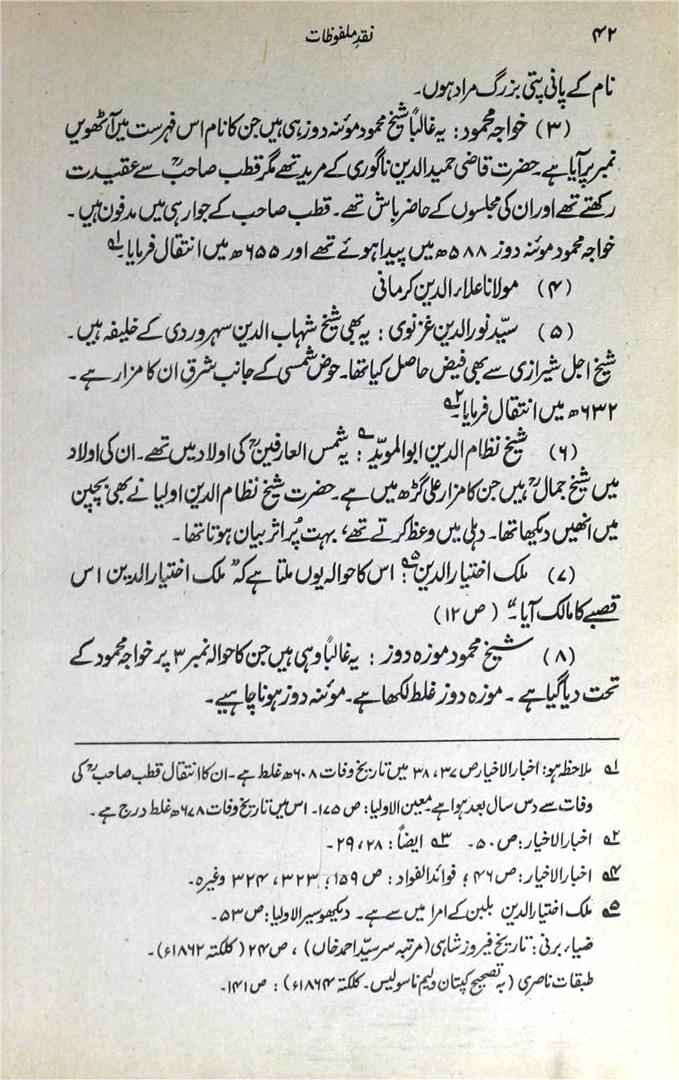 ۴۲
نقدِ ملفوظات
نام کے پانی پتی بزرگ مراد ہوں۔
(۳) خواجہ محمود : یہ غالباً شیخ محمود موئنہ دوز ہی ہیں جن کا نام اس فہرست میں آٹھویں
نمبر پر آیا ہے۔ حضرت قاضی حمید الدین ناگوری کے مرید تھے مگر قطب صاحبؒ سے عقیدت
رکھتے تھے اور ان کی مجلسوں کے حاضر باش تھے۔ قطب صاحب کے جوار ہی میں مدفون ہیں۔
خواجہ محمود موئنہ دوز ۵۸۸ھ میں پیدا ہوئے تھے اور ۶۵۵ھ میں انتقال فرمایا۔ ؂۱
(۴) مولانا علاء الدین کرمانی
(۵) سیّد نور الدین غزنوی : یہ بھی شیخ شہاب الدین سہروردی کے خلیفہ ہیں۔
شیخ اجل شیرازی سے بھی فیض حاصل کیا تھا۔ حوض شمسی کے جانب شرق ان کا مزار ہے۔
۶۳۲ھ میں انتقال فرمایا۔ ؂۲
(۶) شیخ نظام الدین ابوالمویّد : یہ شمس العارفینؒ کی اولاد میں تھے۔ ان کی اولاد
میں شیخ جمالؒ ہیں جن کا مزار علی گڑھ میں ہے۔ حضرت شیخ نظام الدین اولیا نے بھی بچپن
میں انھیں دیکھا تھا۔ دہلی میں وعظ کرتے تھے، بہت پُر اثر بیان ہوتا تھا۔
(۷) ملک اختیار الدین ؂۵ : اس کا حوالہ یوں ملتا ہے کہ "ملک اختیار الدین اس
قصبے کا مالک آیا۔" (ص ۱۲)
(۸) شیخ محمود موزہ دوز : یہ غالباً وہی ہیں جن کا حوالہ نمبر ۳ پر خواجہ محمود کے
تحت دیا گیا ہے۔ موزہ دوز غلط لکھا ہے۔ موئنہ دوز ہونا چاہیے۔
؂۱ ملاحظہ ہو: اخبار الاخیار ص ۳۷، ۳۸ میں تاریخ وفات ۶۰۸ھ غلط ہے۔ ان کا انتقال قطب صاحبؒ کی
وفات سے دس سال بعد ہوا ہے معین الاولیا: ص ۱۷۵۔ اس میں تاریخ وفات ۶۷۸ھ غلط درج ہے۔
؂۲ اخبار الاخیار: ص ۵۰۔ ؂۳ ایضاً: ۲۸، ۲۹۔
؂۴ اخبار الاخیار: ص ۴۶؛ فوائد الفواد: ص ۱۵۹؛ ۳۲۳، ۳۲۴ وغیرہ۔
؂۵ ملک اختیار الدین بلبن کے امرا میں سے ہے۔ دیکھو سیر الاولیا: ص ۵۳۔
ضیاء برنی: تاریخ فیروز شاہی (مرتبہ سر سیّد احمد خاں)، ص ۲۴ (کلکتہ ۱۸۶۲ء)۔
طبقات ناصری (بہ تصحیح کپتان ولیم ناسولیس۔ کلکتہ ۱۸۶۴ء): ص ۱۴۱۔